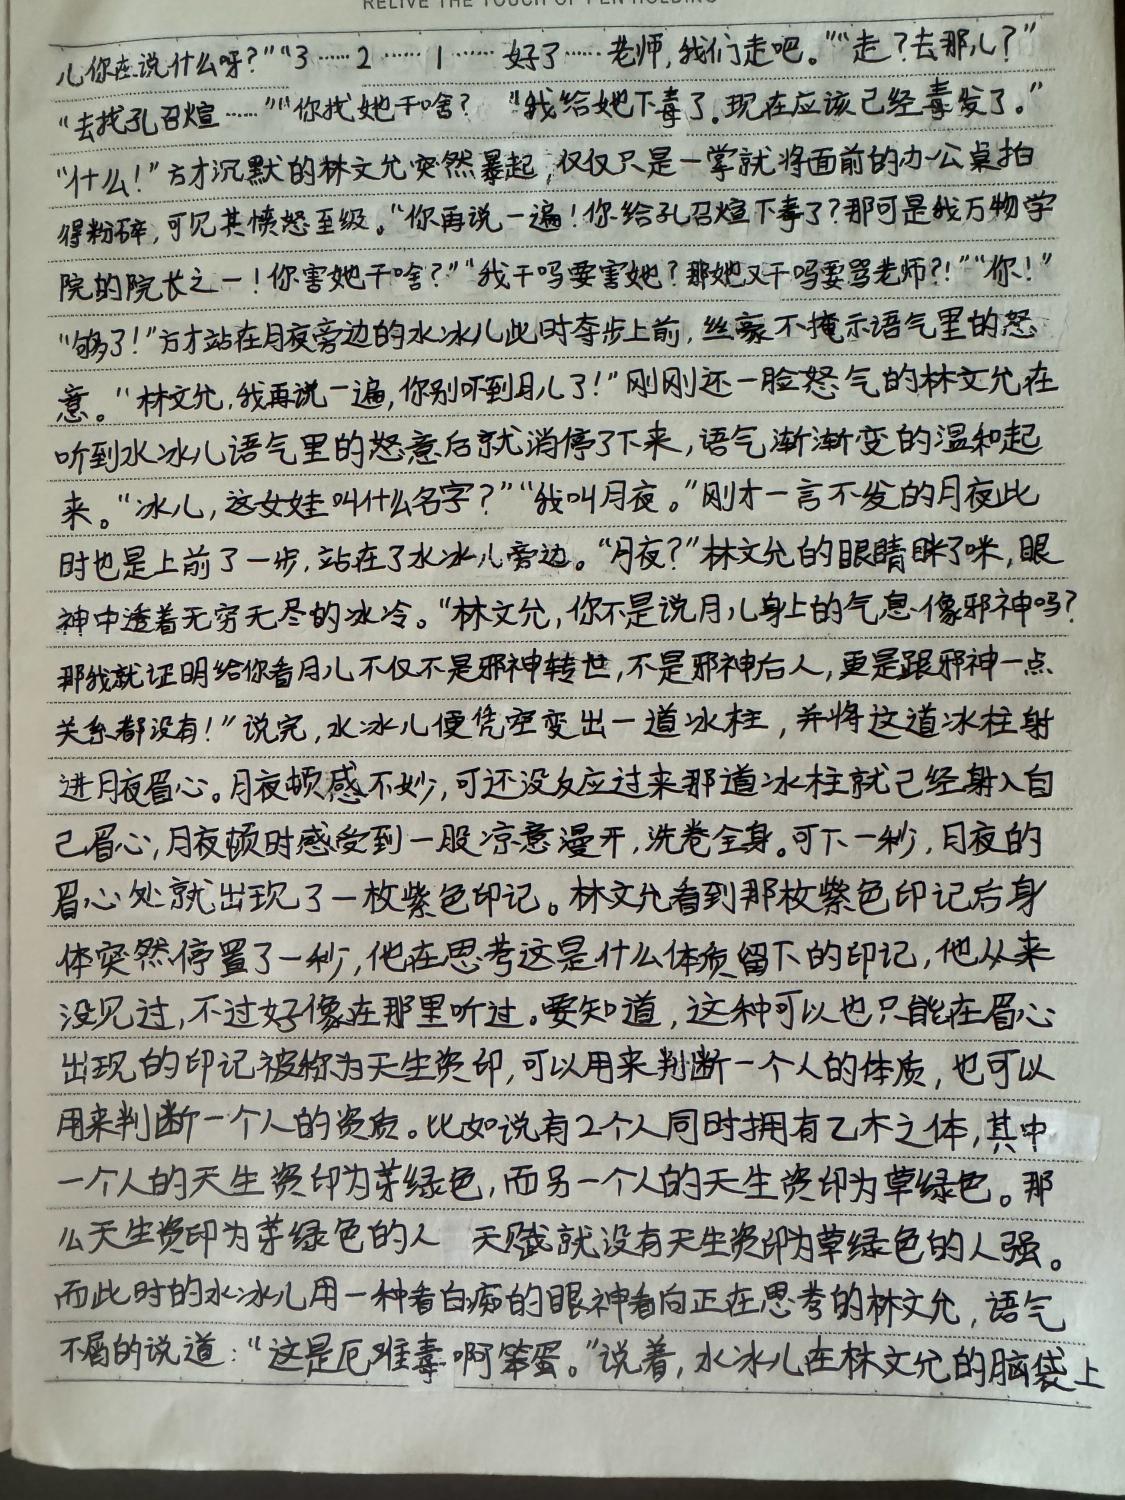 RELIVE THE TOUCH OF PEN HOLDING
儿你在说什么呀？”“3……2……1……好了……老师，我们走吧。”“走？去那儿？”
“去找孔召煊……”“你找她干啥？“我给她下毒了。现在应该已经毒发了。”
“什么！”方才沉默的林文允突然暴起，仅仅只是一掌就将面前的办公桌拍
得粉碎，可见其愤怒至级。“你再说一遍！你给孔召煊下毒了？那可是我万物学
院的院长之一！你害她干啥？”“我干吗要害她？那她又干吗要骂老师？！”“你！”
“够了！”方才站在月夜旁边的水冰儿此时夺步上前，丝豪不掩示语气里的怒
意。“林文允，我再说一遍，你别吓到月儿了！”刚刚还一脸怒气的林文允在
听到水冰儿语气里的怒意后就消停了下来，语气渐渐变的温和起
来。“冰儿，这女娃叫什么名字？”“我叫月夜。”刚才一言不发的月夜此
时也是上前了一步，站在了水冰儿旁边。“月夜？”林文允的眼睛眯了咪，眼
神中透着无穷无尽的冰冷。“林文允，你不是说月儿身上的气息像邪神吗？
那我就证明给你看月儿不仅不是邪神转世，不是邪神后人，更是跟邪神一点
关系都没有！”说完，水冰儿便凭空变出一道冰柱，并将这道冰柱射
进月夜眉心。月夜顿感不妙，可还没反应过来那道冰柱就已经射入自
己眉心，月夜顿时感受到一股凉意漫开，洗卷全身。可下一秒，月夜的
眉心处就出现了一枚紫色印记。林文允看到那枚紫色印记后身
体突然停置了一秒，他在思考这是什么体质留下的印记，他从来
没见过，不过好像在那里听过。要知道，这种可以也只能在眉心
出现的印记被称为天生资印，可以用来判断一个人的体质，也可以
用来判断一个人的资质。比如说有2个人同时拥有乙木之体，其中
一个人的天生资印为芽绿色，而另一个人的天生资印为草绿色。那
么天生资印为芽绿色的人 天赋就没有天生资印为草绿色的人强。
而此时的水冰儿用一种看白痴的眼神看向正在思考的林文允，语气
不屑的说道：“这是厄难毒啊笨蛋。”说着，水冰儿在林文允的脑袋上